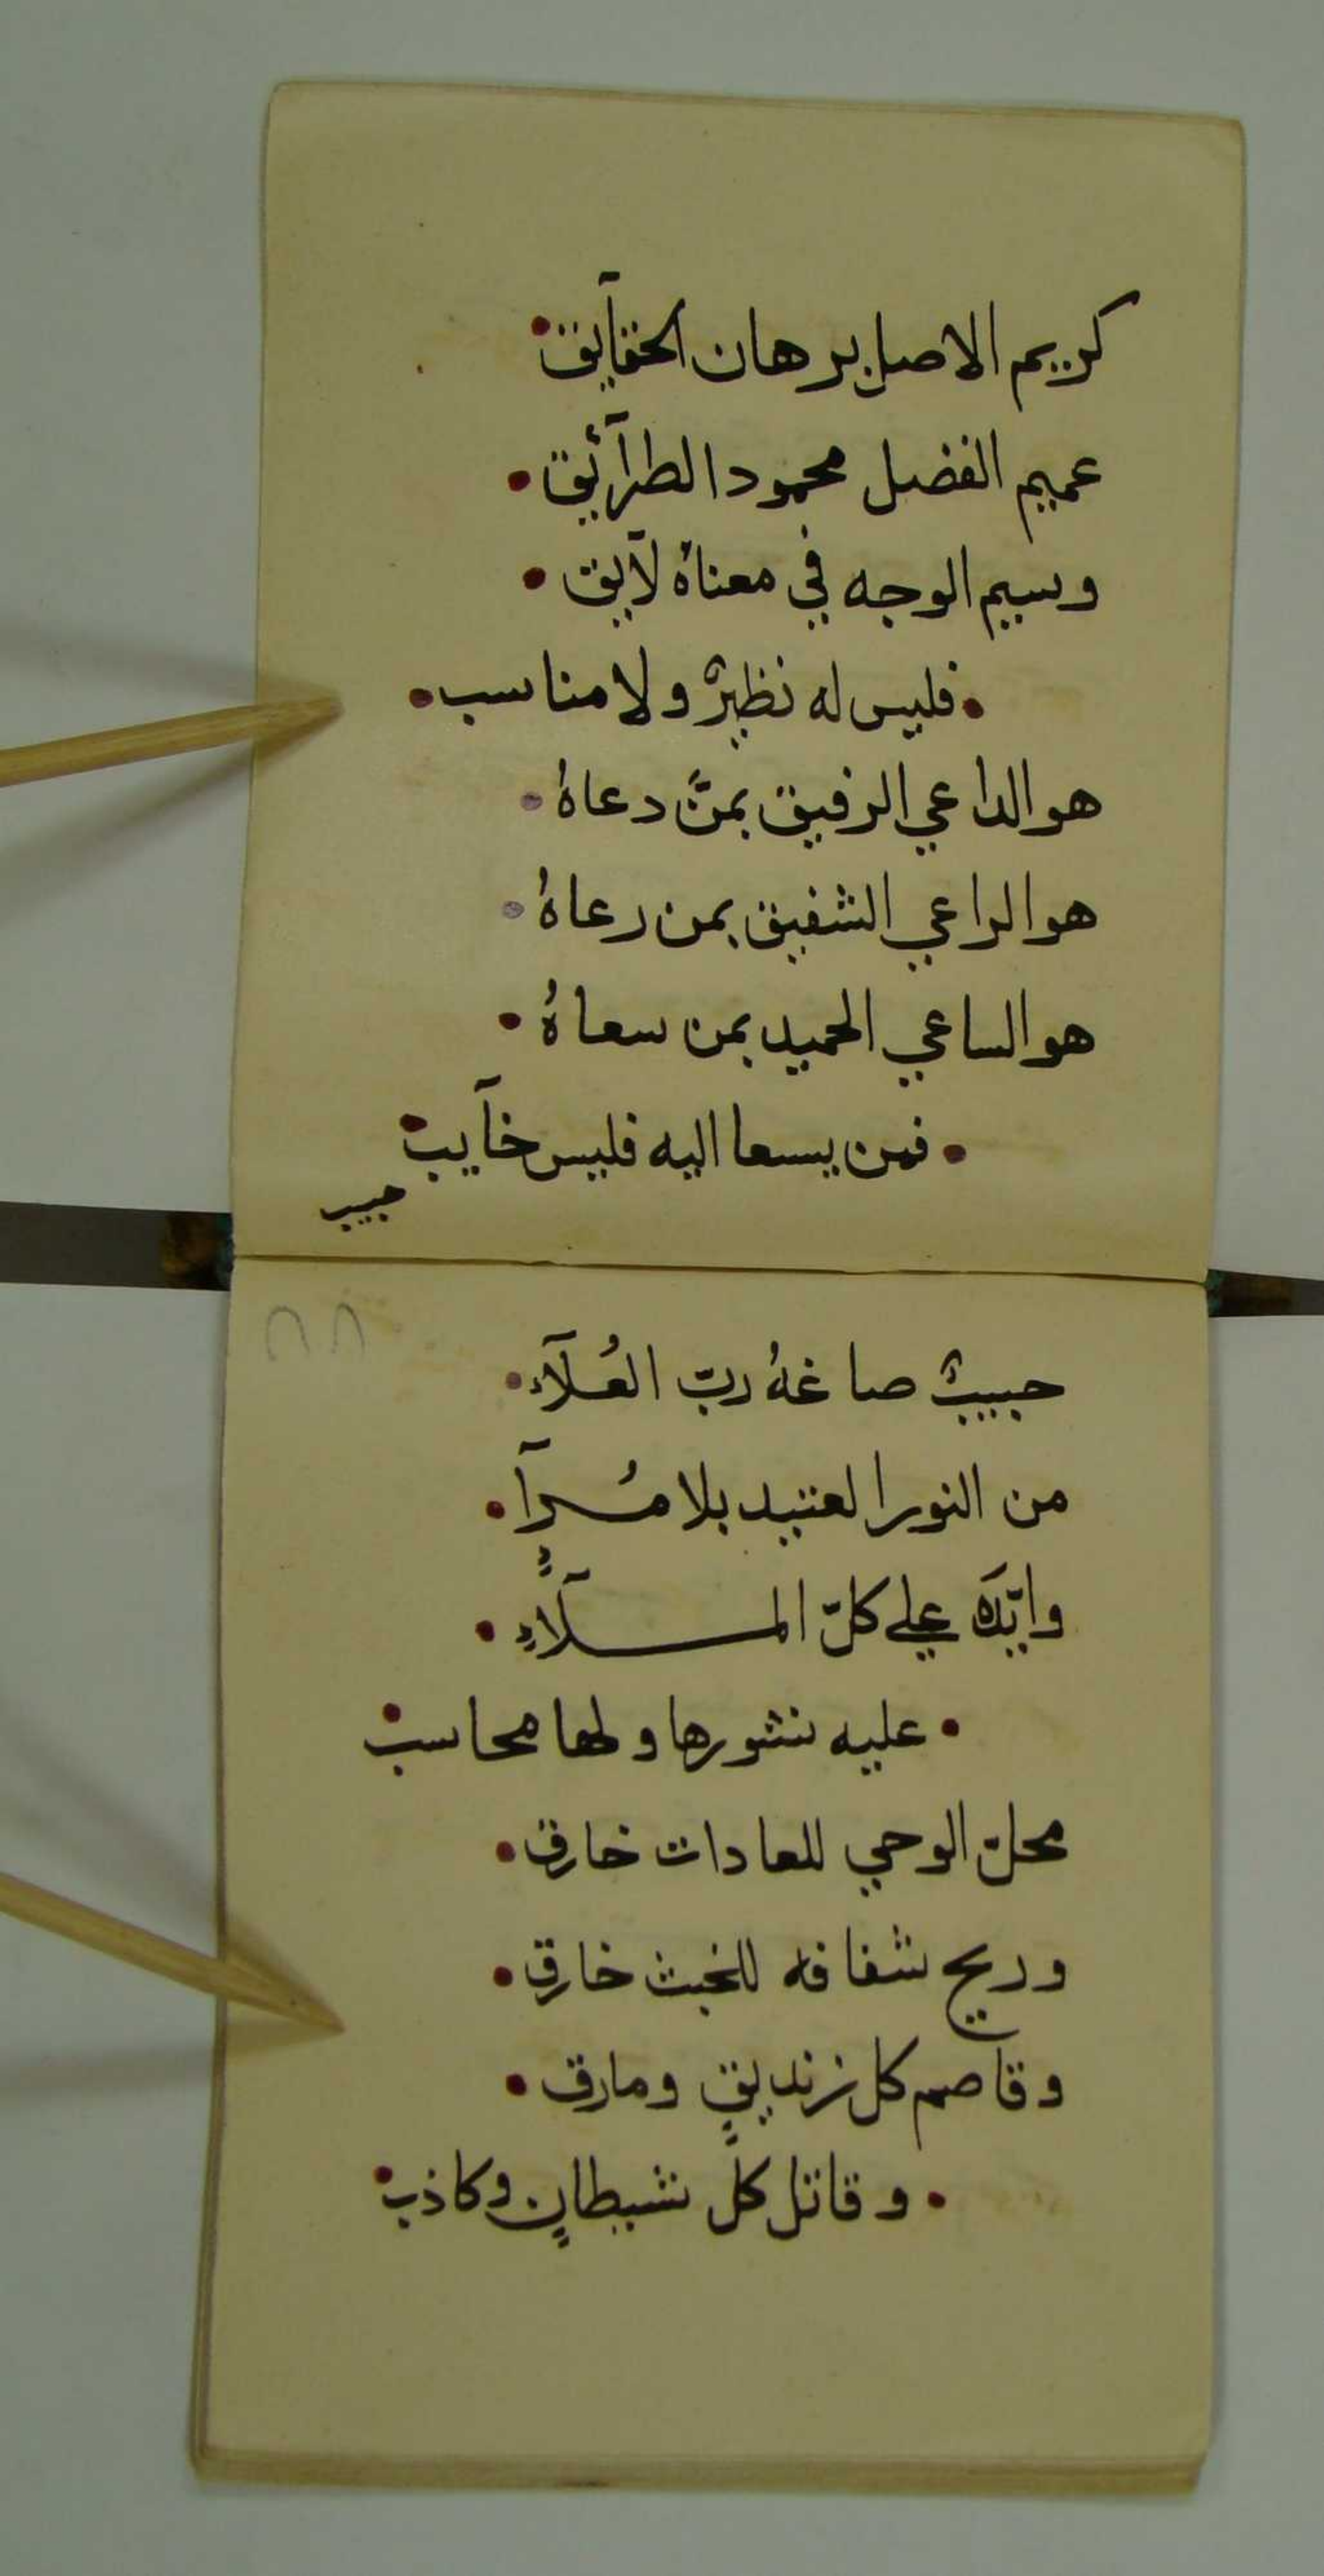 كريم الاصل برهان الحقآيق
عميم الفضل محمود الطرآئق
وسيم الوجه في معناهُ لآيق
فليس له نظيرٌ ولا مناسب
هو الداعي الرفيق بمنّ دعاهُ
هو الراعي الشفيق بمن رعاهُ
هو الساعي الحميد بمن سعاهُ
فمن يسعا اليه فليس خآيب
حبيب
حبيبٌ صاغهُ ربّ العُلآء
من النور العتيد بلا مُرآ
وايّدَه علي كلّ الملآءِ
عليه نشورها ولها محاسب
محلّ الوحي للعادات خارق
وريح شفافه للخبث خارق
وقاصم كل زنديقٍ ومارق
وقاتل كلّ شيطانٍ وكاذب